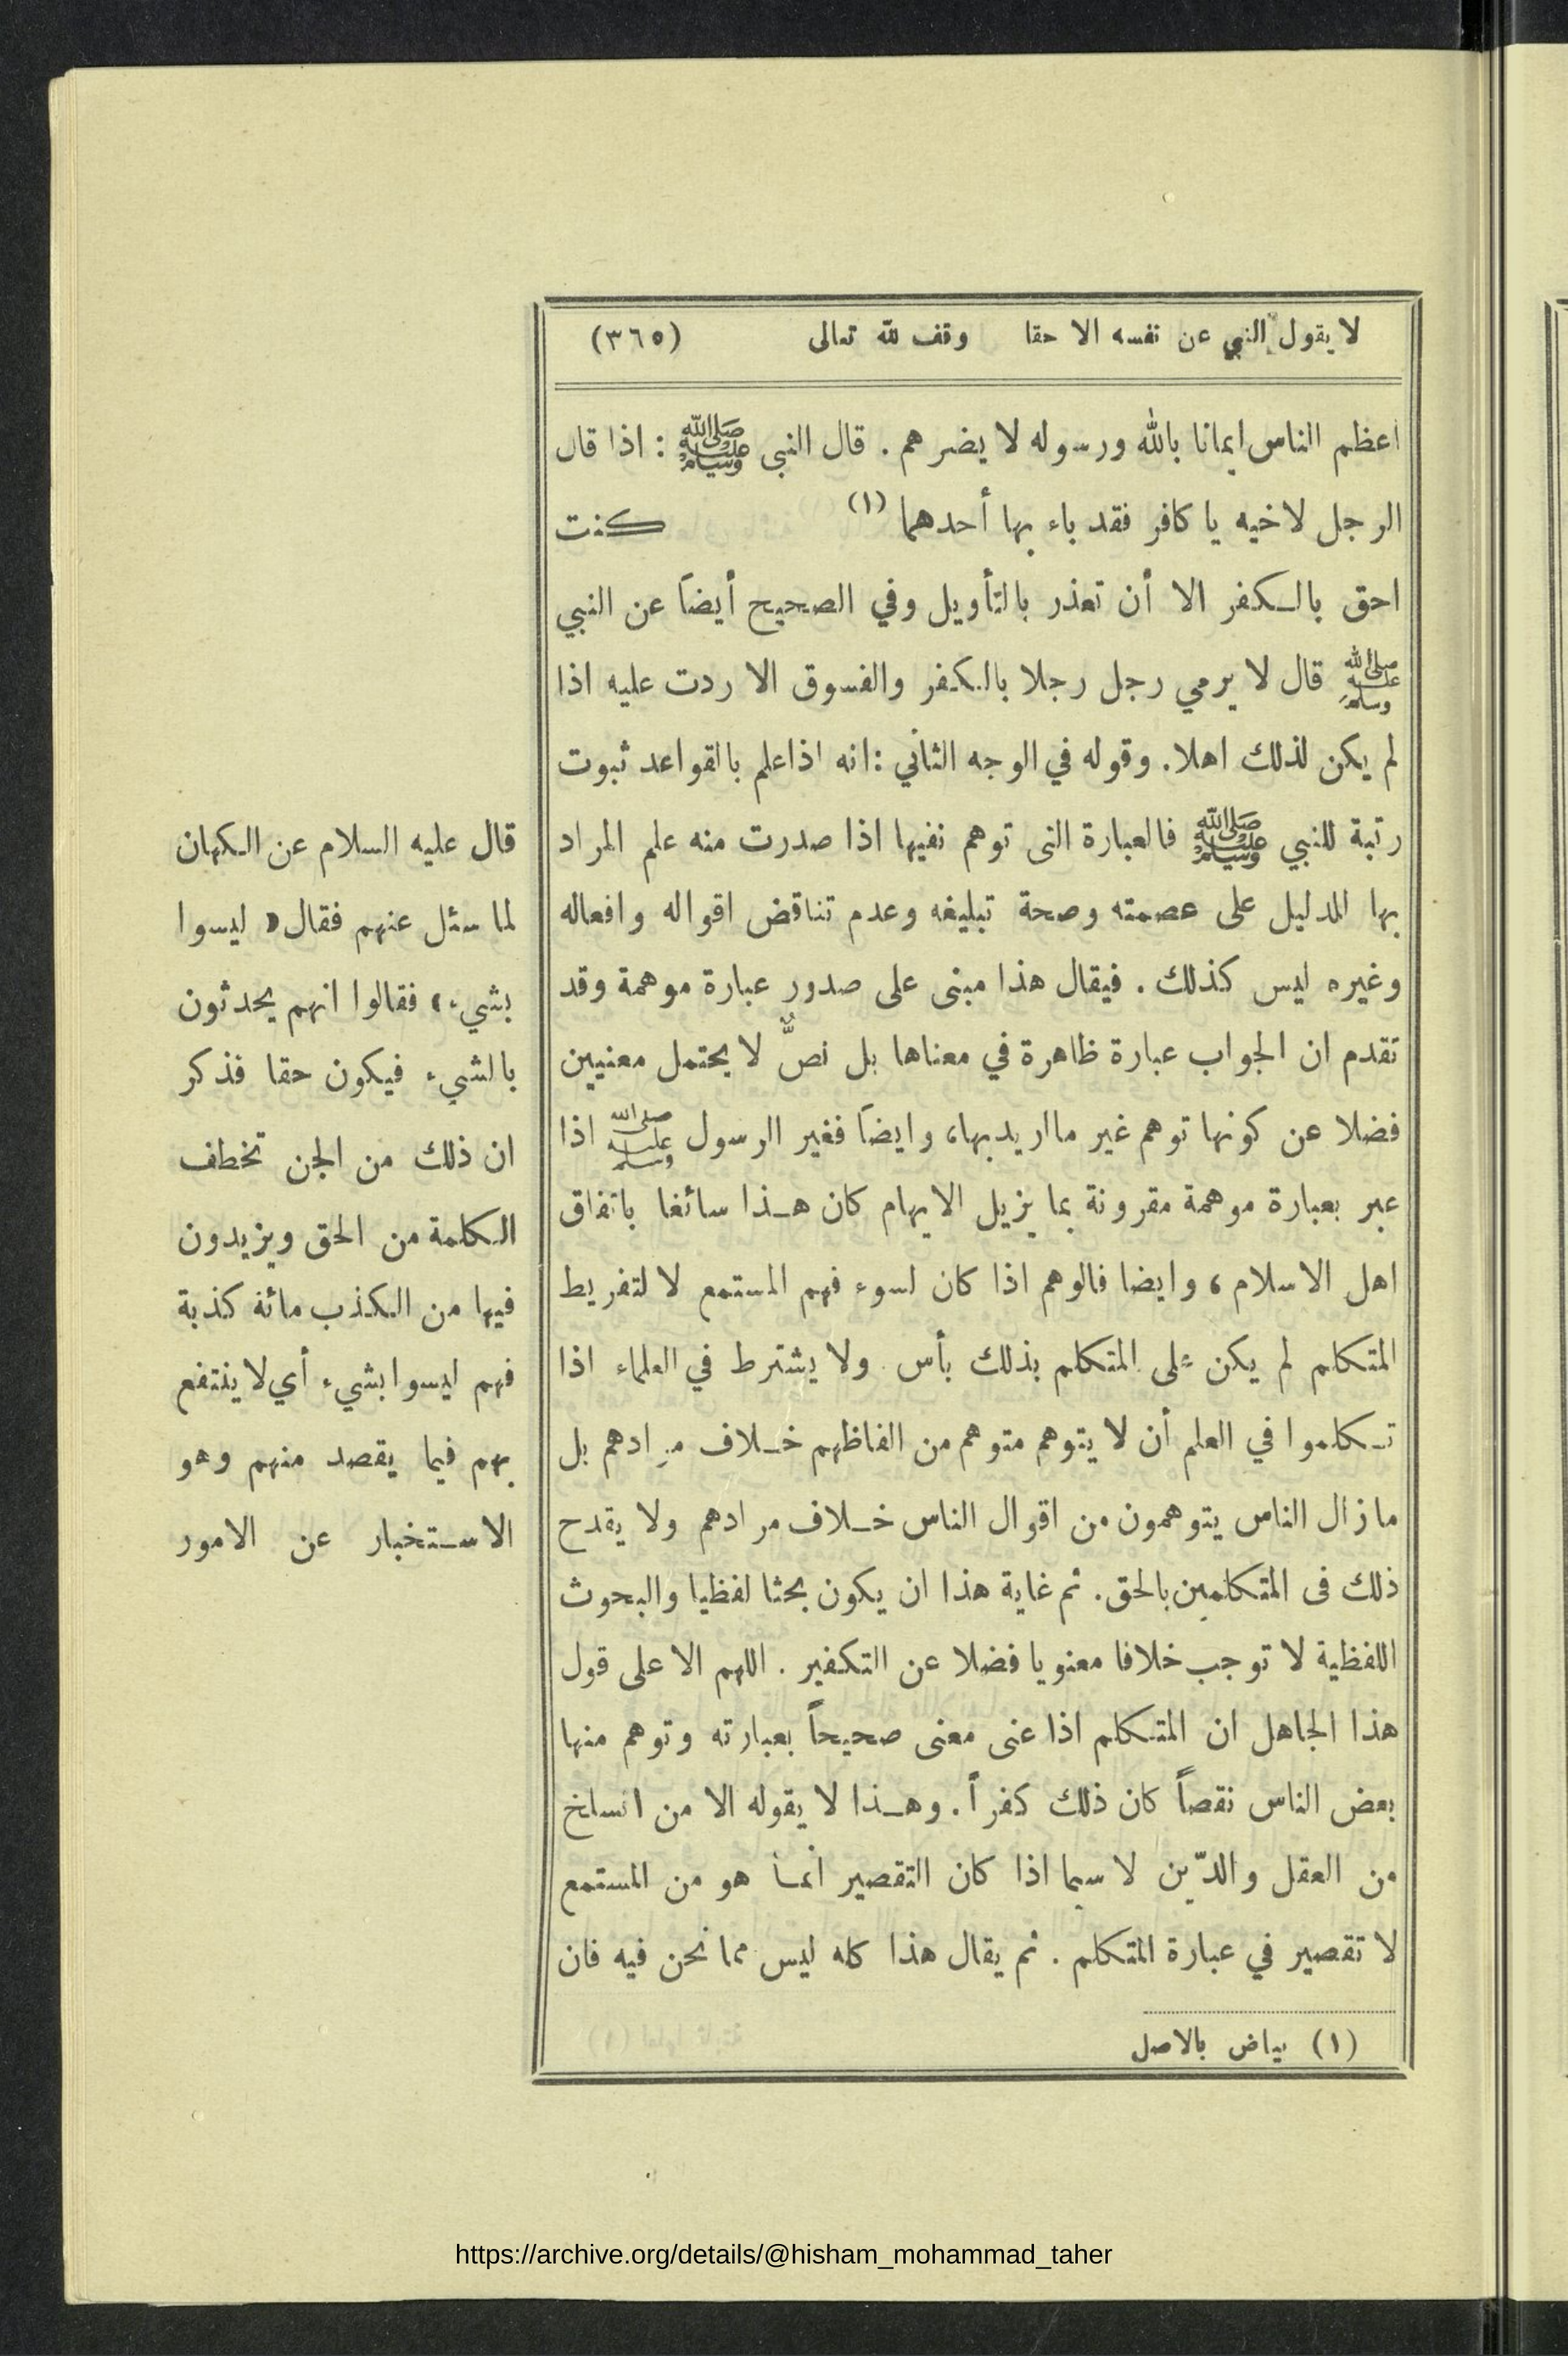 لا يقول النبي عن نفسه الا حقا وقف لله تعالى (٣٦٥)
اعظم الناس ايمانا بالله ورسوله لا يضرهم . قال النبى ﷺ : اذا قال
الرجل لاخيه يا كافر فقد باء بها أحدهما (١) كنت
احق بالكفر الا أن تعذر بالتأويل وفي الصحيح أيضاً عن النبي
ﷺ قال لا يرمي رجل رجلا بالكفر والفسوق الا ردت عليه اذا
لم يكن لذلك اهلا. وقوله في الوجه الثاني : انه اذا علم بالقواعد ثبوت
رتبة للنبي ﷺ فالعبارة التى توهم نفيها اذا صدرت منه علم المراد
بها الدليل على عصمته وصحة تبليغه وعدم تناقض اقواله وافعاله
وغيره ليس كذلك . فيقال هذا مبنى على صدور عبارة موهمة وقد
تقدم ان الجواب عبارة ظاهرة في معناها بل نصٌّ لا يحتمل معنيين
فضلا عن كونها توهم غير ما اريد بها، وايضاً فغير الرسول ﷺ اذا
عبر بعبارة موهمة مقرونة بما يزيل الايهام كان هذا سائغا باتفاق
اهل الاسلام ، وايضا فالوهم اذا كان لسوء فهم المستمع لا لتفريط
المتكلم لم يكن على المتكلم بذلك بأس . ولا يشترط في العلماء اذا
تكلموا في العلم أن لا يتوهم متوهم من الفاظهم خلاف مرادهم بل
ما زال الناس يتوهمون من اقوال الناس خلاف مرادهم ولا يقدح
ذلك فى المتكلمين بالحق. ثم غاية هذا ان يكون بحثا لفظيا والبحوث
اللفظية لا توجب خلافا معنويا فضلا عن التكفير . اللهم الا على قول
هذا الجاهل ان المتكلم اذا عنى معنى صحيحاً بعبارته وتوهم منها
بعض الناس نقصاً كان ذلك كفراً. وهذا لا يقوله الا من انسلخ
من العقل والدّين لا سيما اذا كان التقصير أنما هو من المستمع
لا تقصير في عبارة المتكلم . ثم يقال هذا كله ليس مما نحن فيه فان
(١) بياض بالاصل
قال عليه السلام عن الكهان
لما سئل عنهم فقال « ليسوا
بشيء » فقالوا انهم يحدثون
بالشيء فيكون حقا فذكر
ان ذلك من الجن تخطف
الكلمة من الحق ويزيدون
فيها من الكذب مائة كذبة
فهم ليسوا بشيء أي لا ينتفع
بهم فيما يقصد منهم وهو
الاستخبار عن الامور
https://archive.org/details/@hisham_mohammad_taher